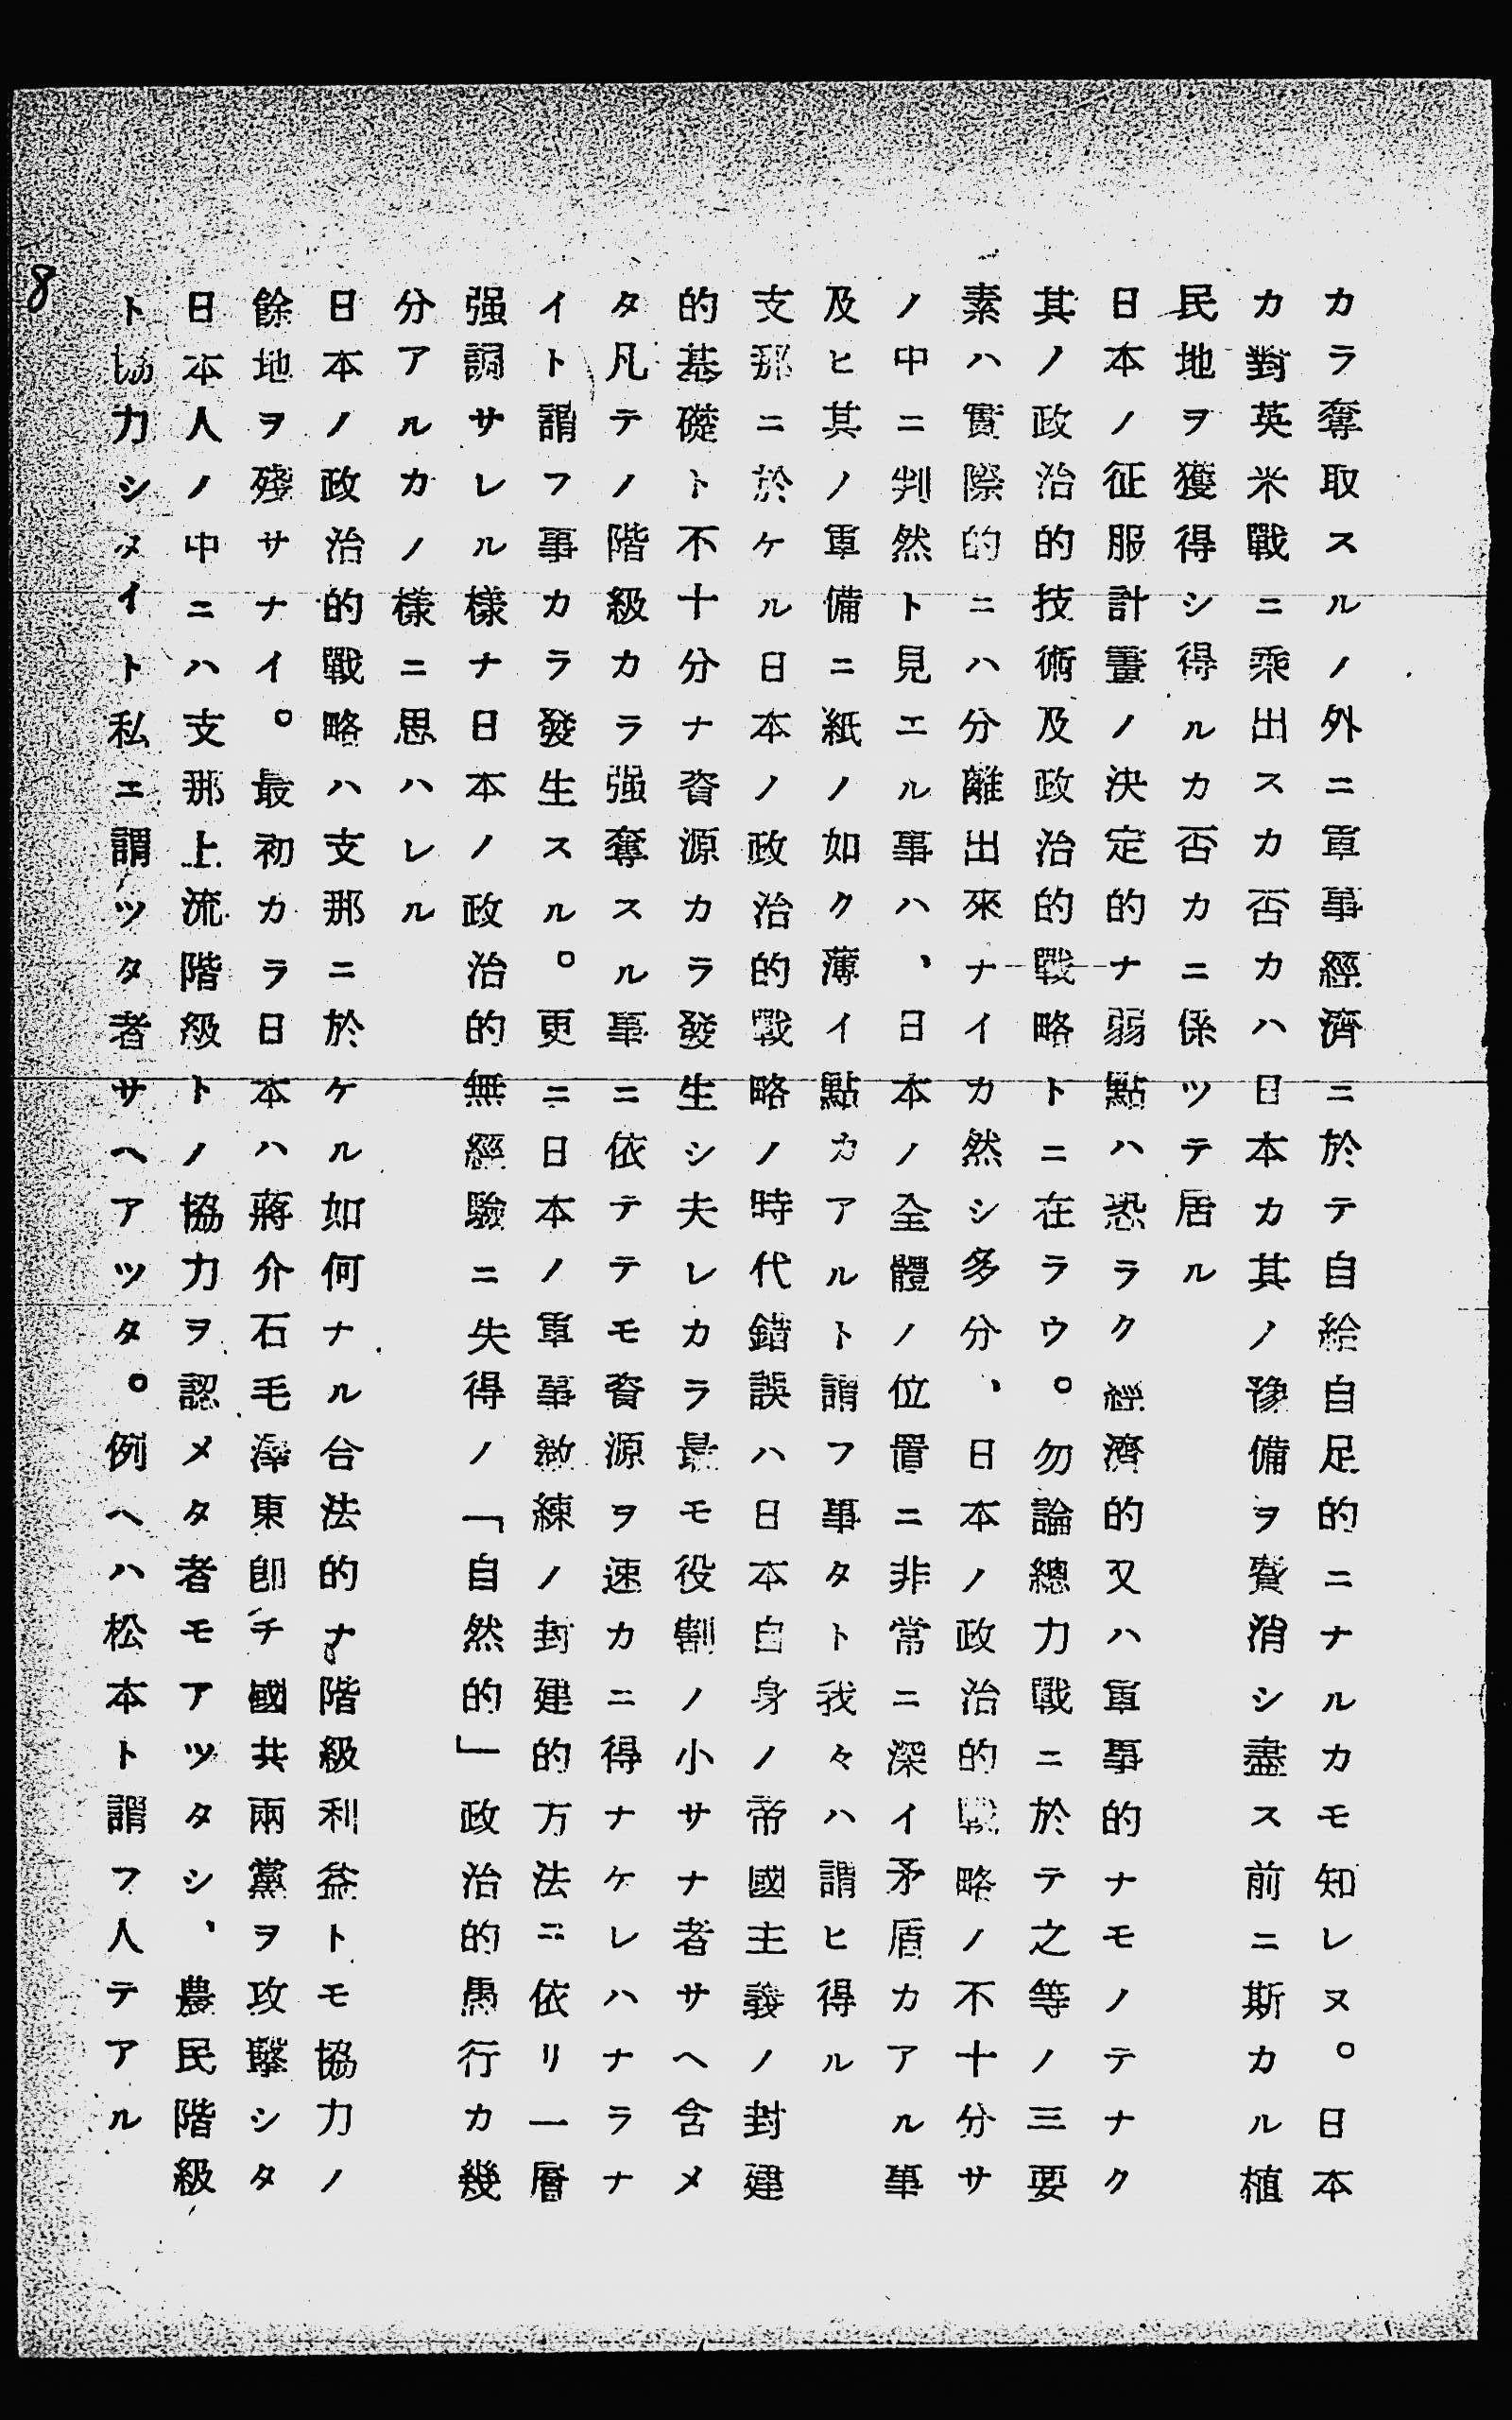 カラ奪取スルノ外ニ軍事經濟ニ於テ自給自足的ニナルカモ知レヌ。日本
カ對英米戰ニ乘出スカ否カハ日本カ其ノ豫備ヲ費消シ盡ス前ニ斯カル植
民地ヲ獲得シ得ルカ否カニ係ツテ居ル
日本ノ征服計畫ノ決定的ナ弱點ハ恐ラク經濟的又ハ軍事的ナモノテナク
其ノ政治的技術及政治的戰略トニ在ラウ。勿論總力戰ニ於テ之等ノ三要
素ハ實際的ニハ分離出來ナイカ然シ多分、日本ノ政治的戰略ノ不十分サ
ノ中ニ判然ト見エル事ハ、日本ノ全體ノ位置ニ非常ニ深イ矛盾カアル事
及ヒ其ノ軍備ニ紙ノ如ク薄イ點カアルト謂フ事タト我々ハ謂ヒ得ル
支那ニ於ケル日本ノ政治的戰略ノ時代錯誤ハ日本自身ノ帝國主義ノ封建
的基礎ト不十分ナ資源カラ發生シ夫レカラ最モ役割ノ小サナ者サヘ含メ
タ凡テノ階級カラ强奪スル事ニ依テテモ資源ヲ速カニ得ナケレハナラナ
イト謂フ事カラ發生スル。更ニ日本ノ軍事敎練ノ封建的方法ニ依リ一層
强調サレル樣ナ日本ノ政治的無經驗ニ失得ノ「自然的」政治的愚行カ幾
分アルカノ樣ニ思ハレル
日本ノ政治的戰略ハ支那ニ於ケル如何ナル合法的ナ階級利益トモ協力ノ
餘地ヲ殘サナイ。最初カラ日本ハ蔣介石毛澤東卽チ國共兩黨ヲ攻擊シタ
日本人ノ中ニハ支那上流階級トノ協力ヲ認メタ者モアツタシ、農民階級
ト協力シタイト私エ謂ツタ者サヘアツタ。例ヘハ松本ト謂フ人テアル
8